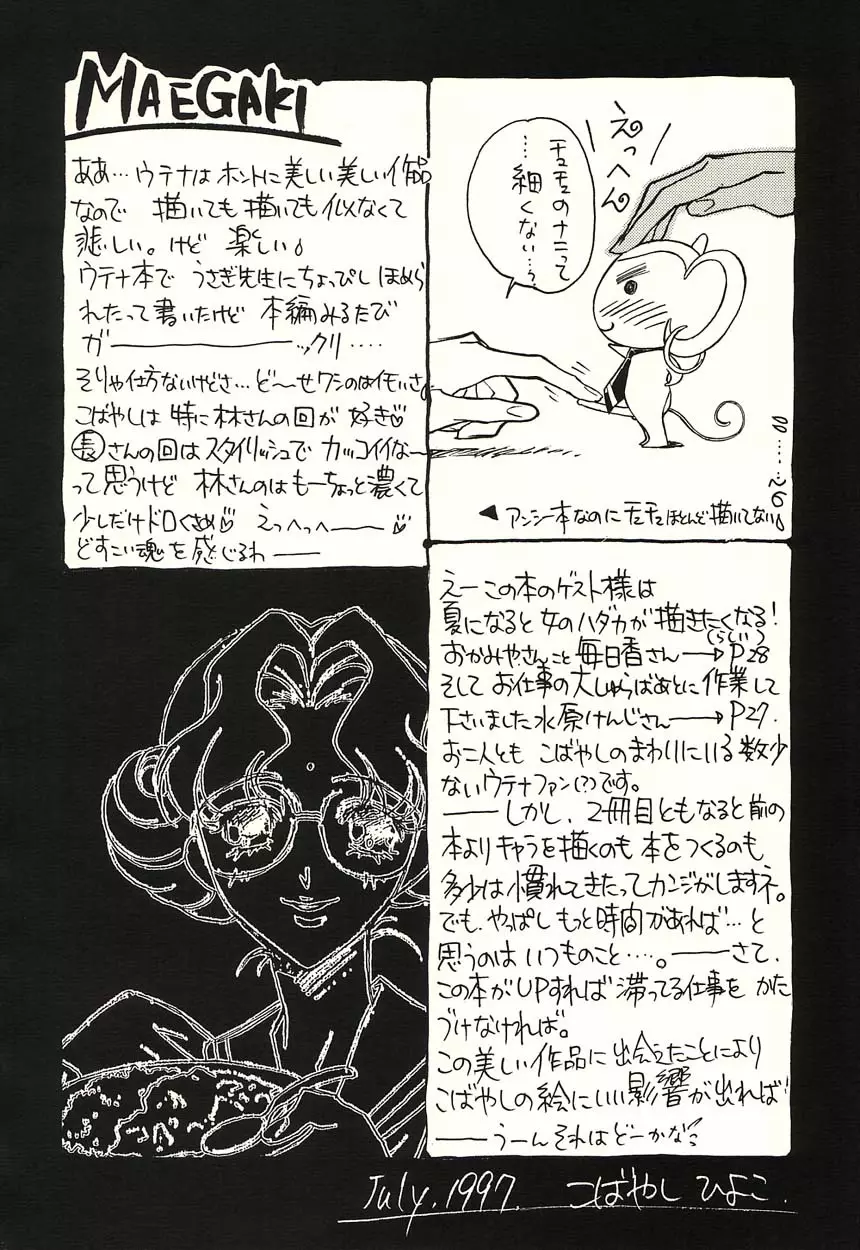 MAEGAKI
ああ…ウテナはホントに美しい美しい作品
なので 描いても描いても似なくて
悲しい。けど 楽しい♪
ウテナ本で うさぎ先生にちょっぴし ほめら
れたって書いたけど 本編みるたび
ガ――――――ックリ‥‥
そりゃ仕方ないけどさ…ど〜せワシのはイモいさ。
こばやしは 特に林さんの回が 好き♡
長さんの回はスタイリッシュで カッコイイな〜
って思うけど 林さんのはもーちょっと濃くて
少しだけドロくさめ♡ えっへっへ―― ♡
どすこい魂を感じるわ――
えっへん
チュチュのナニって
…細くない…?
◀アンシー本なのにチュチュほとんど描いてない。
えー この本のゲスト様は
夏になると 女のハダカが 描きたくなる!
おかみやさんこと 毎日香さん――→P28
そして お仕事の大しゅらばあとに 作業して
下さいました 水原けんじさん――→P27.
お二人とも こばやしのまわりにいる 数少
ないウテナファン(?)です。
――しかし、2冊目ともなると前の
本よりキャラを描くのも 本をつくるのも
多少は慣れてきたってカンジがしますネ。
でも、やっぱし もっと時間があれば…と
思うのは いつものこと‥‥。――さて、
この本がUPすれば 滞ってる仕事を かた
づけなければ。
この美しい作品に 出会えたことにより
こばやしの絵にいい影響が出れば!
――うーん それは どーかな?
July.1997. こばやし ひよこ.